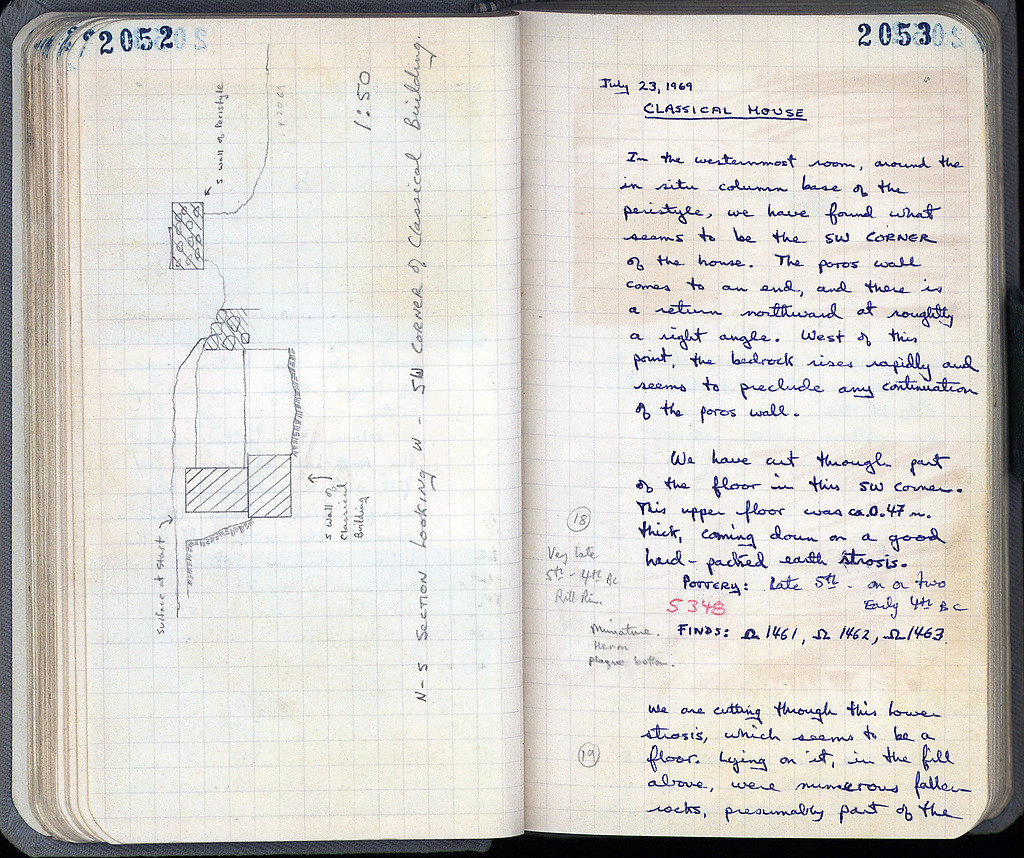 2052
S wall of Peristyle
1:50
N-S SECTION LOOKING W - SW CORNER of Classical Building.
S wall of
Classical
Building
Surface at Start
2053
July 23, 1969
CLASSICAL HOUSE
In the westernmost room, around the
in situ column base of the
peristyle, we have found what
seems to be the SW CORNER
of the house. The poros wall
comes to an end, and there is
a return northward at roughtly
a right angle. West of this
point, the bedrock rises rapidly and
seems to preclude any continuation
of the poros wall.
We have cut through part
of the floor in this SW corner.
This upper floor was ca. 0.47 m.
thick, coming down on a good
hard-packed earth strosis.
18
Very late
5th - 4th BC
POTTERY: Late 5th - on or two
Early 4th BC
S 348
Miniature
Herm
plaque
FINDS: Ω 1461, Ω 1462, Ω 1463.
We are cutting through this lower
strosis, which seems to be a
19
floor. Lying on it, in the fill
above, were numerous fallen
rocks, presumably part of the